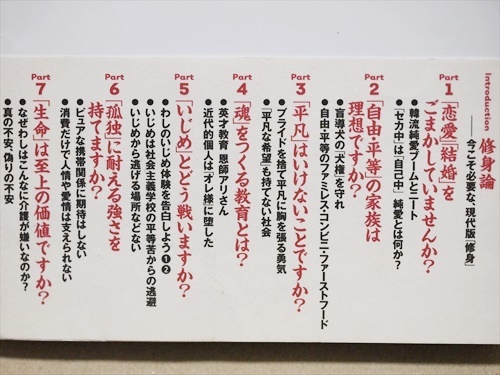 introduction
修身論
――今こそ必要な、現代版「修身」
Part
1
「恋愛」「結婚」を
ごまかしていませんか?
●韓流純愛ブームとニート
●「セカ中」は「自己中」 純愛とは何か?
Part
2
「自由・平等」の家族は
理想ですか?
●盲導犬の「犬権」を守れ
●自由・平等のファミレス・コンビニ・ファーストフード
Part
3
「平凡」はいけないことですか?
●プライドを捨て平凡に胸を張る勇気
●「平凡な希望」も持てない社会
Part
4
「魂」をつくる教育とは?
●英才教育 恩師アリさん
●近代的個人は「オレ様」に堕した
Part
5
「いじめ」とどう戦いますか?
●わしのいじめ体験を告白しよう❶❷
●いじめは社会主義学校の平等苦からの逃避
●いじめから逃げる場所などない
Part
6
「孤独」に耐える強さを
持てますか?
●ピュアな携帯関係に期待はしない
●消費だけで人情や愛情は支えられない
Part
7
「生命」は至上の価値ですか?
●なぜわしはこんなに介護が嫌いなのか?
●真の不安、偽りの不安